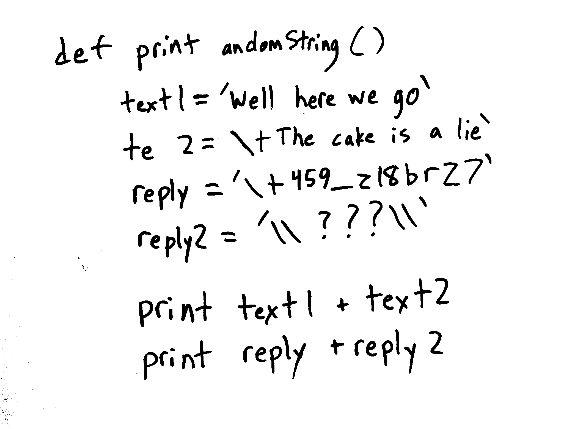 def print andomString ()
text1 = 'Well here we go`
te 2 = \t The cake is a lie`
reply = '\t 459_z18br27`
reply2 = '\\ ???\\`
print text1 + text2
print reply + reply 2